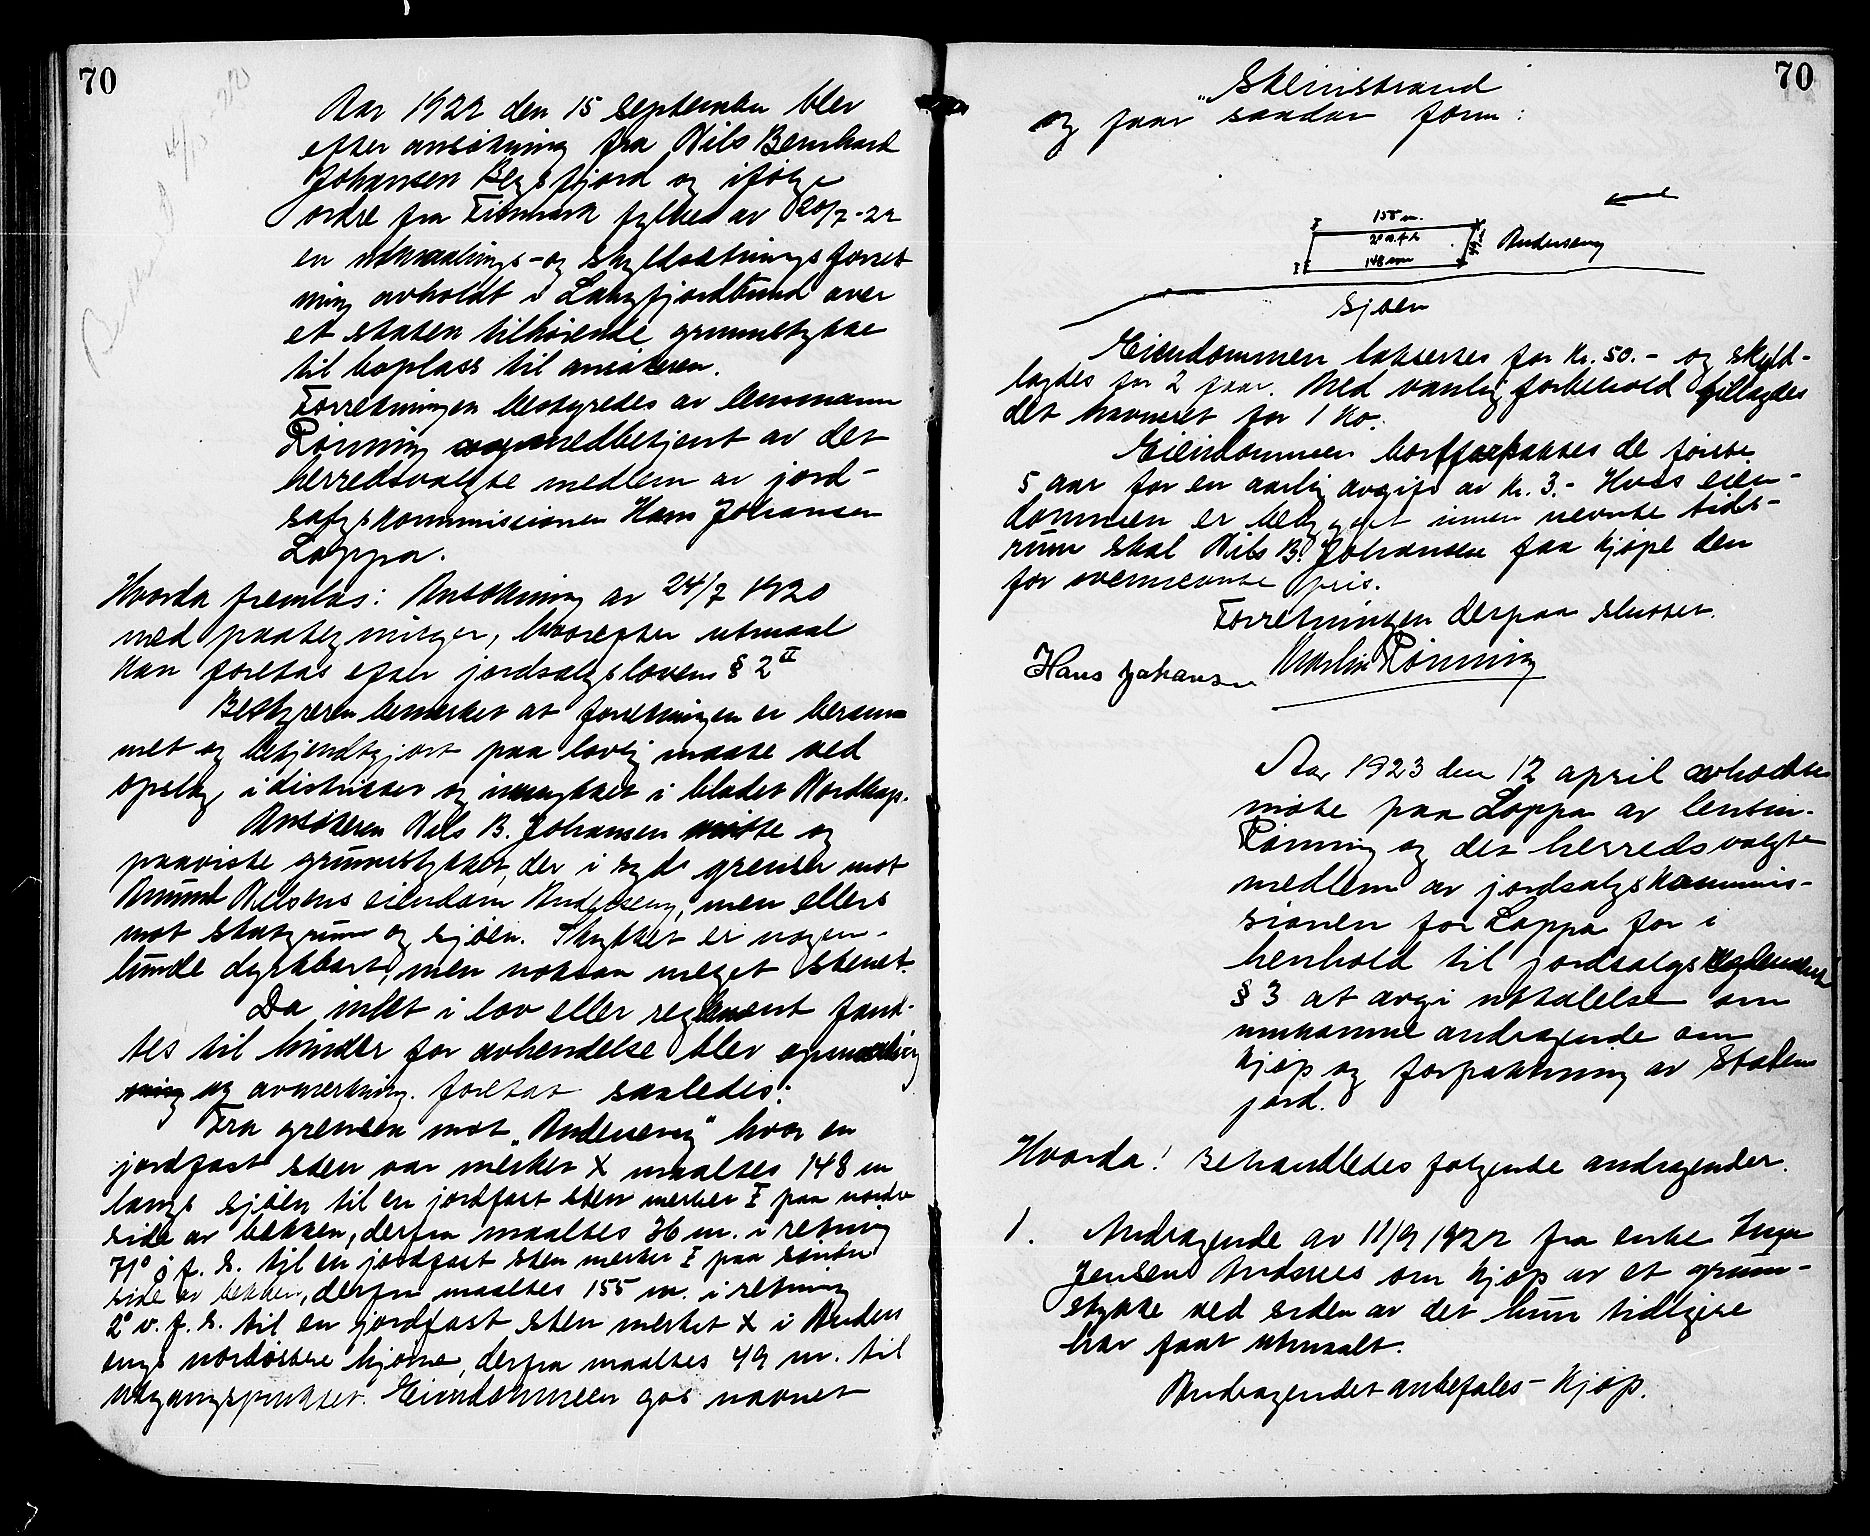 70
Aar 1922 den 15 september blev
efter ansøkning fra Nils Bernhard
Johansen Bergsfjord og ifølge
ordre fra Finmark fylke av 20/7-22
en utmaalings- og skyldsætningsforret
ning avholdt i Langfjordbund over
et staten tilhørende grunnstykke
til boplass til ansøkeren.
Forretningen bestyredes av lensmann
Rønning medbetjent av det
herredsvalgte medlem av jord-
salgskommissionen Hans Johansen
Loppa.
Hvorda fremlas: Ansøkning av 24/7 1920
med paategninger, hvorefter utmaal
kan foretas efter jordsalgslovens § 2 II
Bestyreren bemerket at forretningen er beram-
met og bekjendtgjort paa lovlig maate ved
opslag i distriktet og innrykket i bladet Nordkap.
Ansøkeren Nils B. Johansen møtte og
paaviste grunnstykket, der i syd grenser mot
Amund Nilsens eiendom Anderseng, men ellers
mot statsgrunn og sjøen. Stykket er nogen-
lunde dyrkbart, men noksaa meget stenet.
Da intet i lov eller reglement fand-
tes til hinder for avhendelse blev opmaaling
og avmerkning foretat saaledes:
Fra grensen mot "Anderseng" hvor en
jordfast sten var merket X maaltes 148 m
langs sjøen til en jordfast sten merket I paa nordre
side av bekken, derfra maaltes 36 m. i retning
71° ø. f. s. til en jordfast sten merket I paa søndre
side av bekken, derfra maaltes 155 m. i retning
2° v. f. s. til en jordfast sten merket X i Anders
engs nordøstre hjørne, derfra maaltes 49 m. til
utgangspunktet. Eiendommen gås navnet
70
"Steinstrand
og faar saadan form:
155 m.
2° v. f. s.
148 m
49 m
Anderseng
Sjøen
Eiendommen takseres for kr. 50.- og skyld-
lagdes for 2 øre. Med vanlig forbehold tillagdes
det havneret for 1 ko.
Eiendommen bortforpaktes de første
5 aar for en aarlig avgift av kr. 3.- Hvis eien-
dommen er bebygget innen nevnte tids-
rum skal Nils B. Johansen faa kjøpe den
for ovennevnte pris.
Forretningen derpaa sluttet.
Hans Johansen Martin Rønning
Aar 1923 den 12 april avholdtes
møte paa Loppa av lensm.
Rønning og det herredsvalgte
medlem av jordsalgskommis-
sionen for Loppa for i
henhold til jordsalgsreglementets
§ 3 at avgi uttalelse om
innkomne andragende om
kjøp og forpaktning av statens
jord.
Hvorda! Behandledes følgende andragender.
1. Andragende av 11/9 1922 fra enke Inga
Jensen Andsnes om kjøp av et grunn-
stykke ved siden av det hun tidligere
har faat utmaalt.
Andragendet anbefales - kjøp.